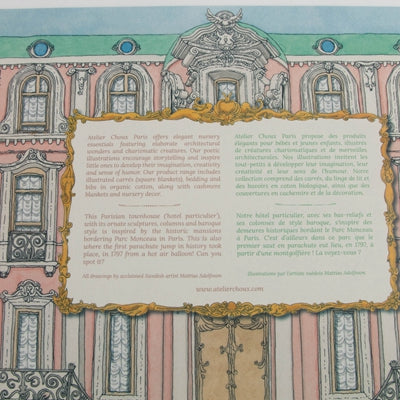 Atelier Choux Paris offers elegant nursery
essentials featuring elaborate architectural
wonders and charismatic creatures. Our poetic
illustrations encourage storytelling and inspire
little ones to develop their imagination, creativity
and sense of humor. Our product range includes
illustrated carrés (square blankets), bedding and
bibs in organic cotton, along with cashmere
blankets and nursery decor.
This Parisian townhouse (hotel particulier), with
its ornate sculptures, columns and baroque
style is inspired by the historic mansions
bordering Parc Monceau in Paris. This is also
where the first parachute jump in history took
place, in 1797 from a hot air balloon! Can you
spot it?
All drawings by acclaimed Swedish artist Mattias Adolfsson.
Atelier Choux Paris propose des produits
élégants pour bébés et jeunes enfants, illustrés
de créatures charismatiques et de merveilles
architecturales. Nos illustrations invitent les
tout-petits à développer leur imagination, leur
créativité et leur sens de l'humour. Notre
collection comprend des carrés, du linge de lit et
des bavoirs en coton biologique, ainsi que des
couvertures en cachemire et de la décoration.
Notre hôtel particulier, avec ses bas-reliefs et
ses colonnes de style baroque, s'inspire des
demeures historiques bordant le Parc Monceau
à Paris. C'est d'ailleurs dans ce parc que le
premier saut en parachute eut lieu, en 1797, à
partir d'une montgolfière ! La voyez-vous ?
Illustrations par l'artiste suédois Mattias Adolfsson.
www.atelierchoux.com